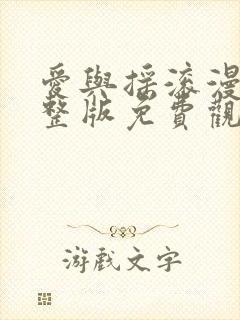 愛與搖滾漫
整版免費觀
游戲文字